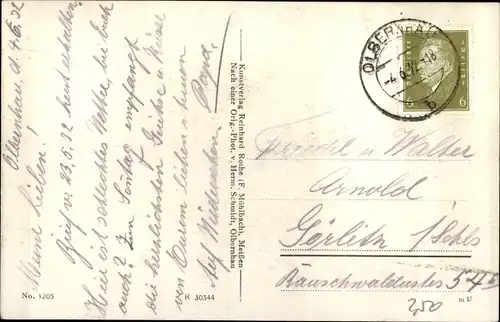 Olbernhau, d. 4.6.32
Meine Lieben!
Brief v. 23.5.32 heut erhalten
Hier ist schlechtes Wetter bei Euch
auch? Zum Sonntag empfangt
die herzlichsten Grüße u. Küsse
von Eurem lieben u. treuen
Papa.
Auf Wiedersehen
No. 1205
R 50544
Kunstverlag Reinhard Rothe (F. Möhlbach), Meißen
Nach einer Orig.-Phot. v. Herm. Schmidt, Olbernhau
OLBERNHAU
4.6.32.-18
b
6
6
u Walter
Arnold
Görlitz /Schls
Rauschwalderstr 54
250
m U